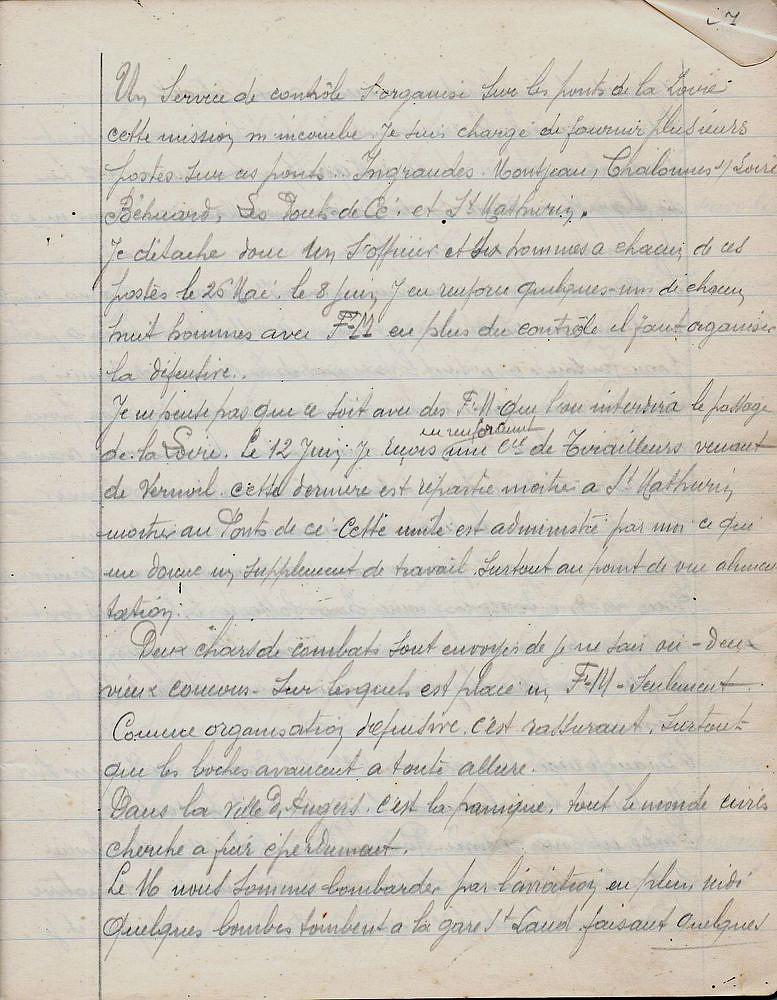 Un Service de contrôle s'organise sur les ponts de la Loire
cette mission m'incombe. Je suis chargé de fournir plusieurs
postes sur ces ponts. Ingrandes. Montjean, Chalonnes s/ Loire
Béhuard, Les Ponts-de-Cé. et St Mathurin.
Je détache donc un s/officier et six hommes a chacun de ces
postes le 26 Mai. le 8 Juin J'en renforce quelques-uns de chacun
huit hommes avec F-M en plus du contrôle il faut organiser
la défensive..
Je ne pense pas que ce soit avec des F-M que l'on interdira le passage
en renforcement
de la Loire. Le 12 Juin je reçois une Cie de Tirailleurs venant
de Vernoil. cette dernière est répartie moitié a St Mathurin
moitié au Ponts de cé. Cette unité est administrée par moi ce qui
me donne un supplément de travail. surtout au point de vue alimen
tation.
Deux chars de combats sont envoyés de je ne sais où - deux
vieux coucous - sur lesquels est placé un F-M - seulement.
Comme organisation défensive, c'est rassurant, surtout
que les boches avancent a toute allure.
Dans la ville d'Angers. c'est la panique, tout le monde civils
cherche a fuir éperdument.
Le 16 nous sommes bombarder par l'aviation en plein midi
Quelques bombes tombent a la gare St Laud faisant quelques